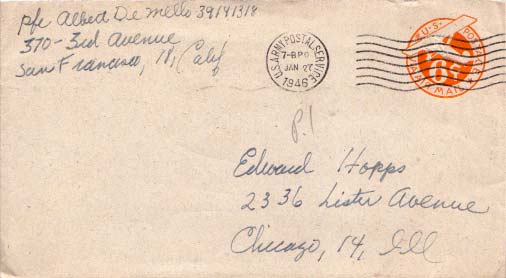 Pfc Albert De Mello 39141318
370-3rd Avenue
San Francisco, 18, Calif
U.S. ARMY POSTAL SERVICE
JAN 27
1946
U.S. POSTAGE
6¢
AIR MAIL
P.1
Edward Hopps
2336 Lister Avenue
Chicago, 14, Ill